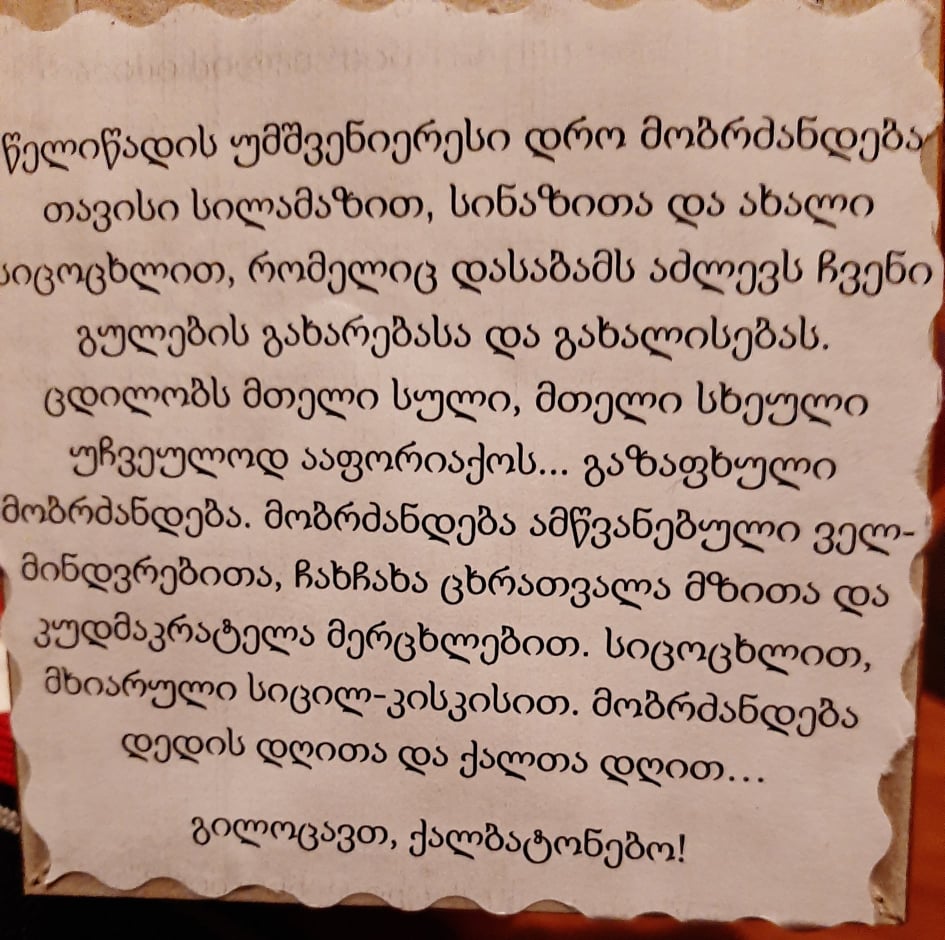 წელიწადის უმშვენიერესი დრო მობრძანდება
თავისი სილამაზით, სინაზითა და ახალი
სიცოცხლით, რომელიც დასაბამს აძლევს ჩვენი
გულების გახარებასა და გახალისებას.
ცდილობს მთელი სული, მთელი სხეული
უჩვეულოდ ააფორიაქოს... გაზაფხული
მობრძანდება. მობრძანდება ამწვანებული ველ-
მინდვრებითა, ჩახჩახა ცხრათვალა მზითა და
კუდმაკრატელა მერცხლებით. სიცოცხლით,
მხიარული სიცილ-კისკისით. მობრძანდება
დედის დღითა და ქალთა დღით...
გილოცავთ, ქალბატონებო!